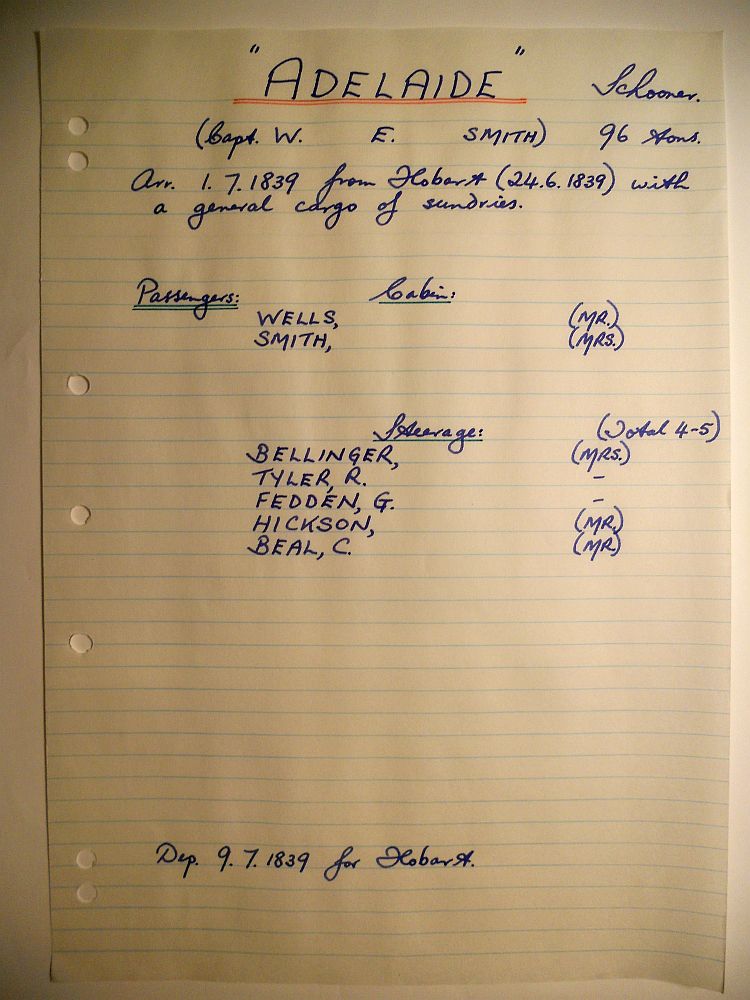 "ADELAIDE" Schooner.
(Capt. W. E. SMITH) 96 tons.
Arr. 1.7.1839 from Hobart (24.6.1839) with
a general cargo of sundries.
Passengers: Cabin:
WELLS, (MR.)
SMITH, (MRS.)
Steerage: (Total 4-5)
BELLINGER, (MRS.)
TYLER, R. -
FEDDEN, G. -
HICKSON, (MR.)
BEAL, C. (MR)
Dep. 9.7.1839 for Hobart.